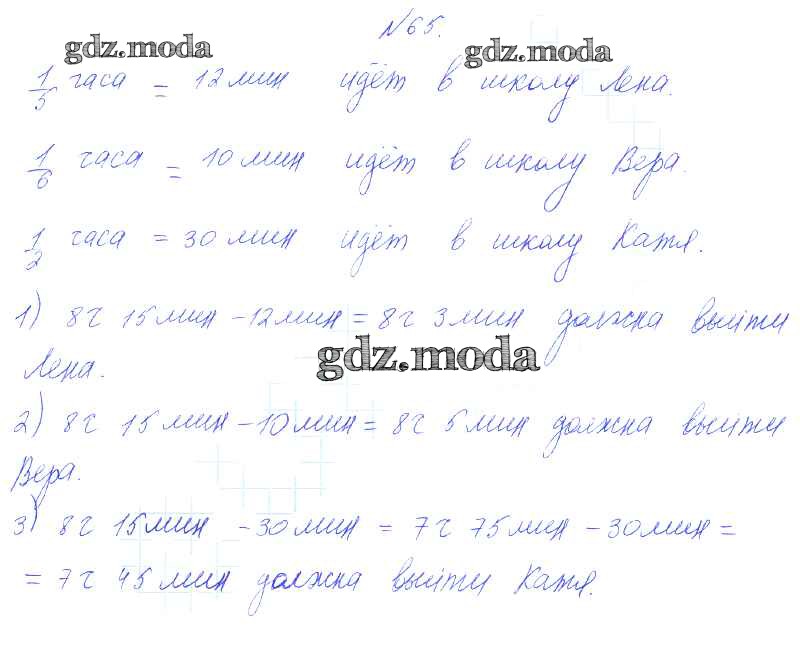 №65.
gdz.moda gdz.moda
1/5 часа = 12 мин идёт в школу Лена.
1/6 часа = 10 мин идёт в школу Вера.
1/2 часа = 30 мин идёт в школу Катя.
1) 8 ч 15 мин - 12 мин = 8 ч 3 мин должна выйти
gdz.moda
Лена.
2) 8 ч 15 мин - 10 мин = 8 ч 5 мин должна выйти
Вера.
3) 8 ч 15 мин - 30 мин = 7 ч 75 мин - 30 мин =
= 7 ч 45 мин должна выйти Катя.